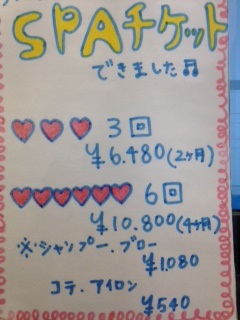 SPAチケット
できました♬
♥♥♥ 3回
¥6.480(2ヶ月)
♥♥♥♥♥♥ 6回
¥10.800(4ヶ月)
※シャンプー.ブロー
¥1.080
コテ.アイロン
¥540